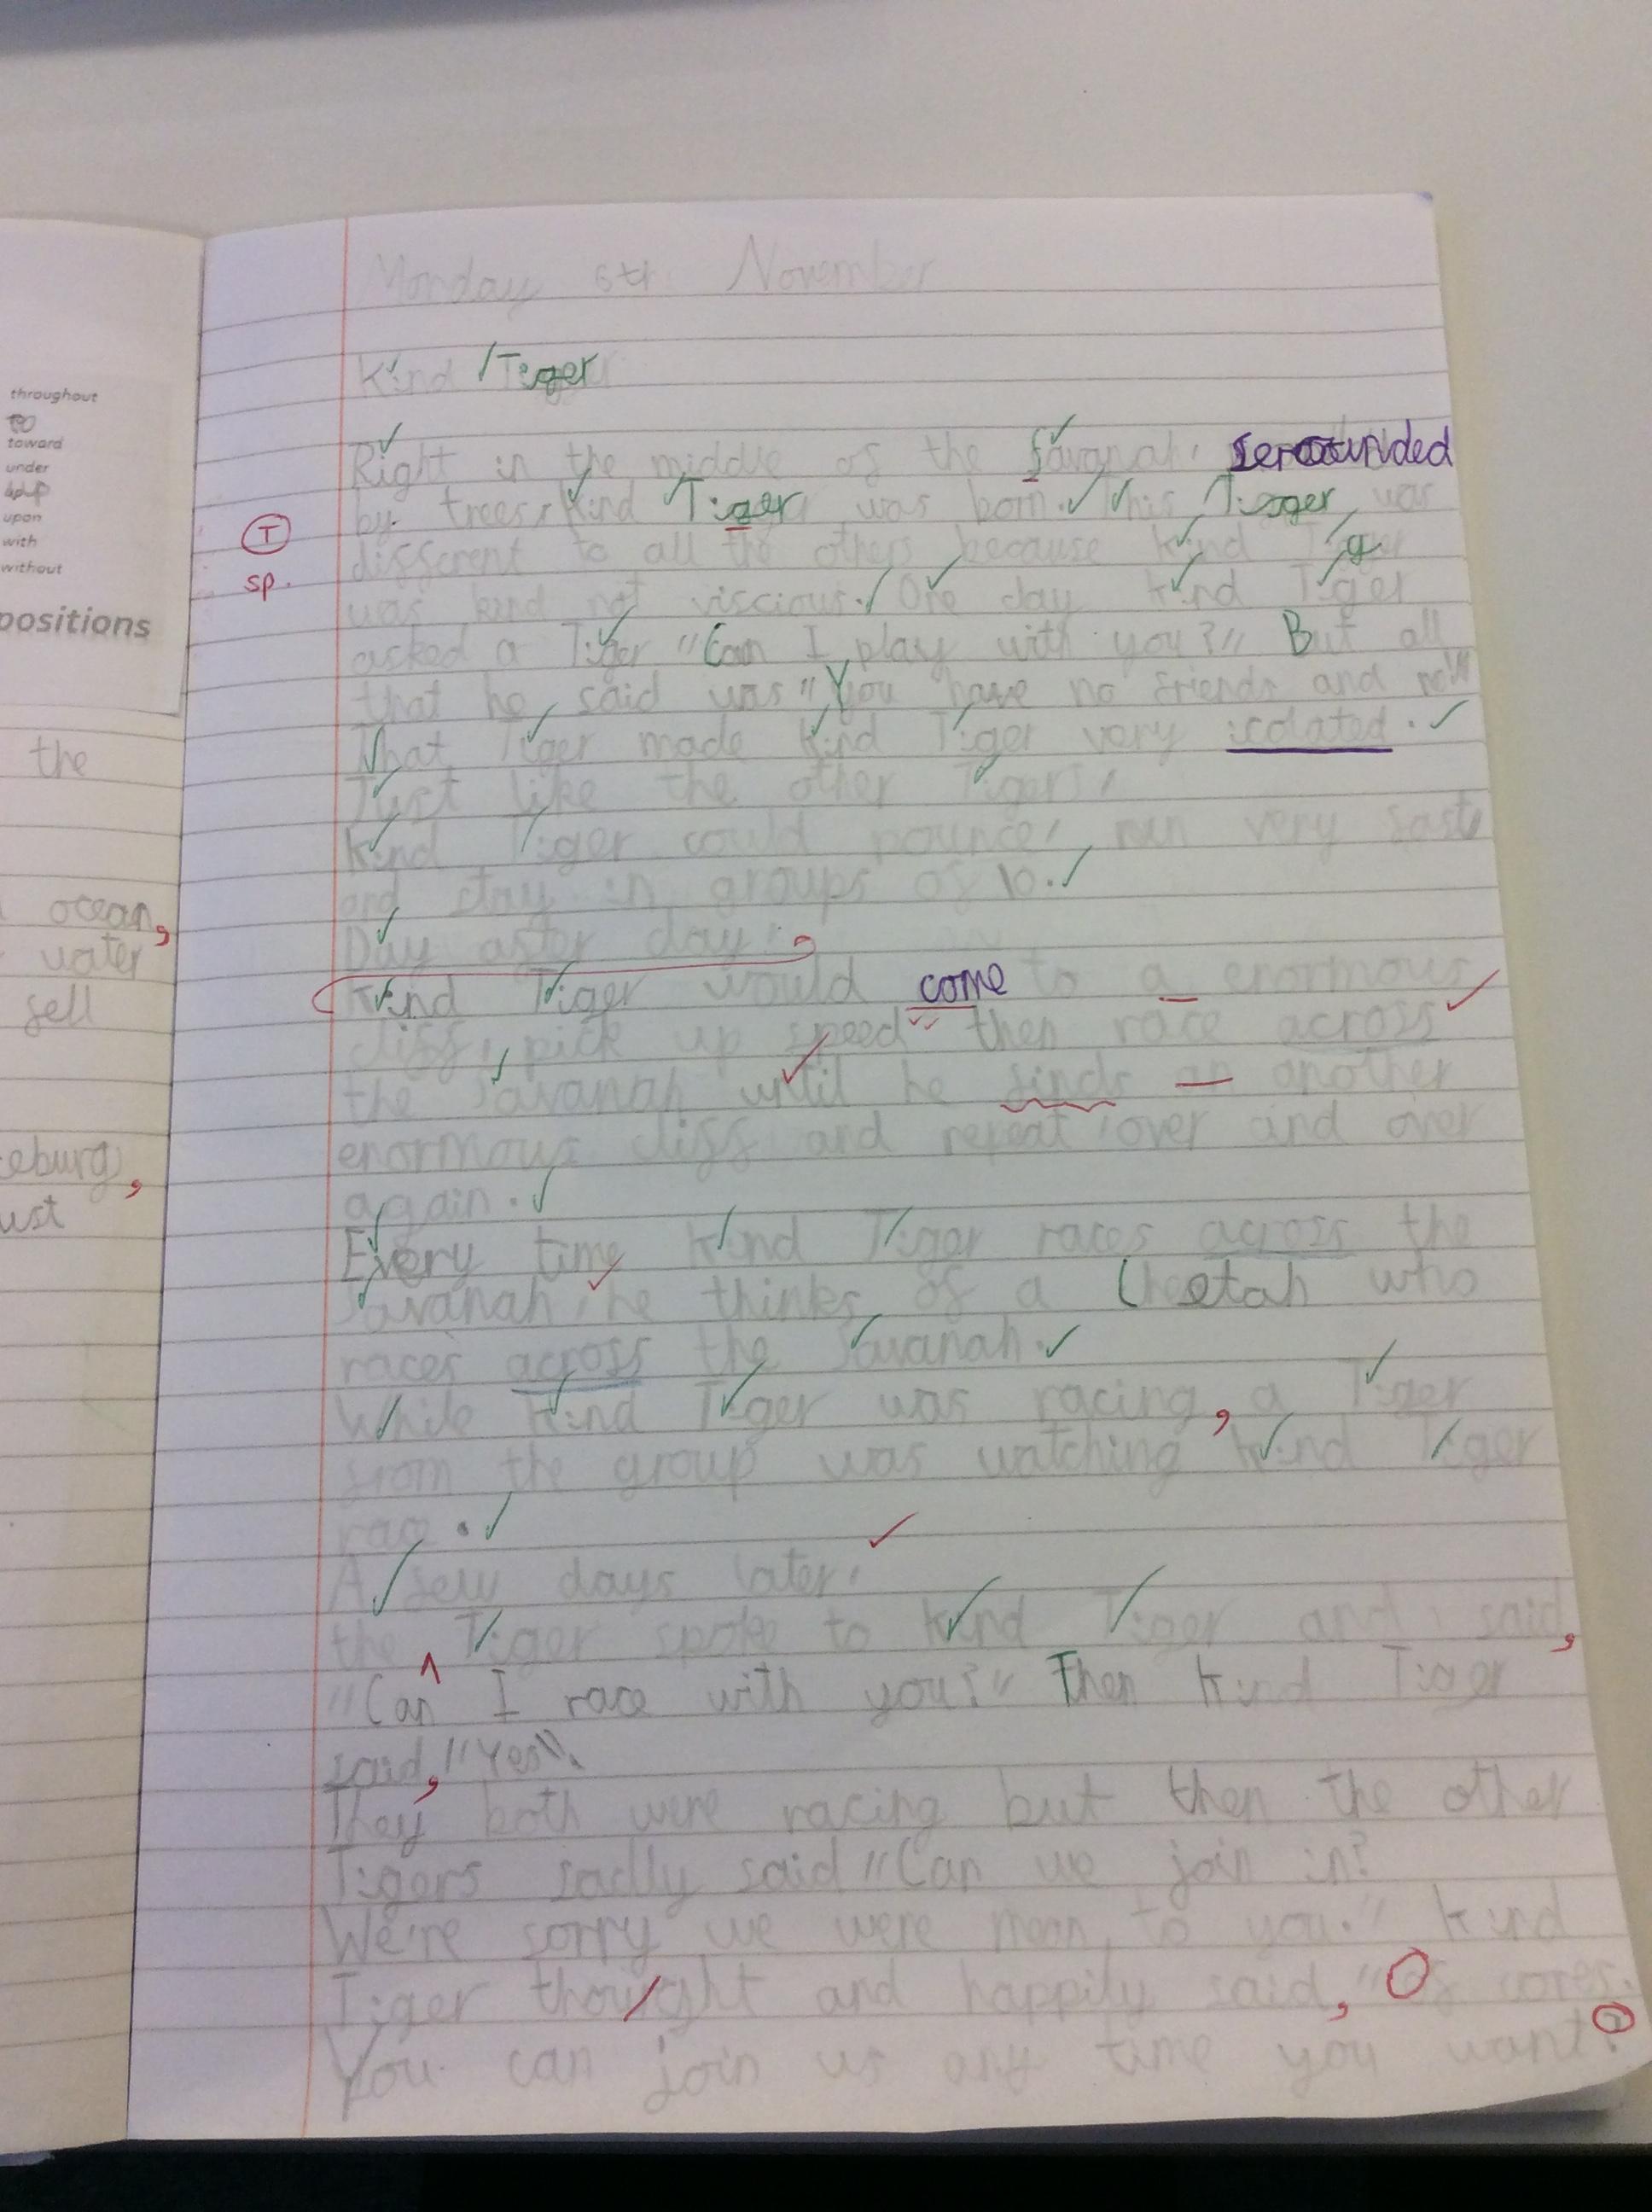 throughout
to
toward
under
up
upon
with
without
positions
the
ocean,
water
sell
eburg,
ust
Monday 6th November
Kind Tiger
Right in the middle of the Savanah, serounded
by trees, Kind Tiger was born. This Tiger was
T
different to all the others because Kind Tiger
sp.
was kind not viscious. One day Kind Tiger
asked a Tiger "Can I play with you?" But all
that he said was "You have no friends and no"
That Tiger made Kind Tiger very isolated.
Just like the other Tigers,
Kind Tiger could pounce, run very fast
and stay in groups of 10.
Day after day,
Kind Tiger would come to a enormous
cliff, pick up speed then race across
the Savanah until he finds an another
enormous cliff and repeat over and over
again.
Every time Kind Tiger races across the
Savanah, he thinks of a Cheetah who
races across the Savanah.
While Kind Tiger was racing, a Tiger
from the group was watching Kind Tiger
race.
A few days later,
the Tiger spoke to Kind Tiger and said,
"Can I race with you?" Then Kind Tiger
said, "Yes".
They both were racing but then the other
Tigers sadly said "Can we join in?
We're sorry we were mean to you." Kind
Tiger thought and happily said, "Of cores.
You can join us any time you want